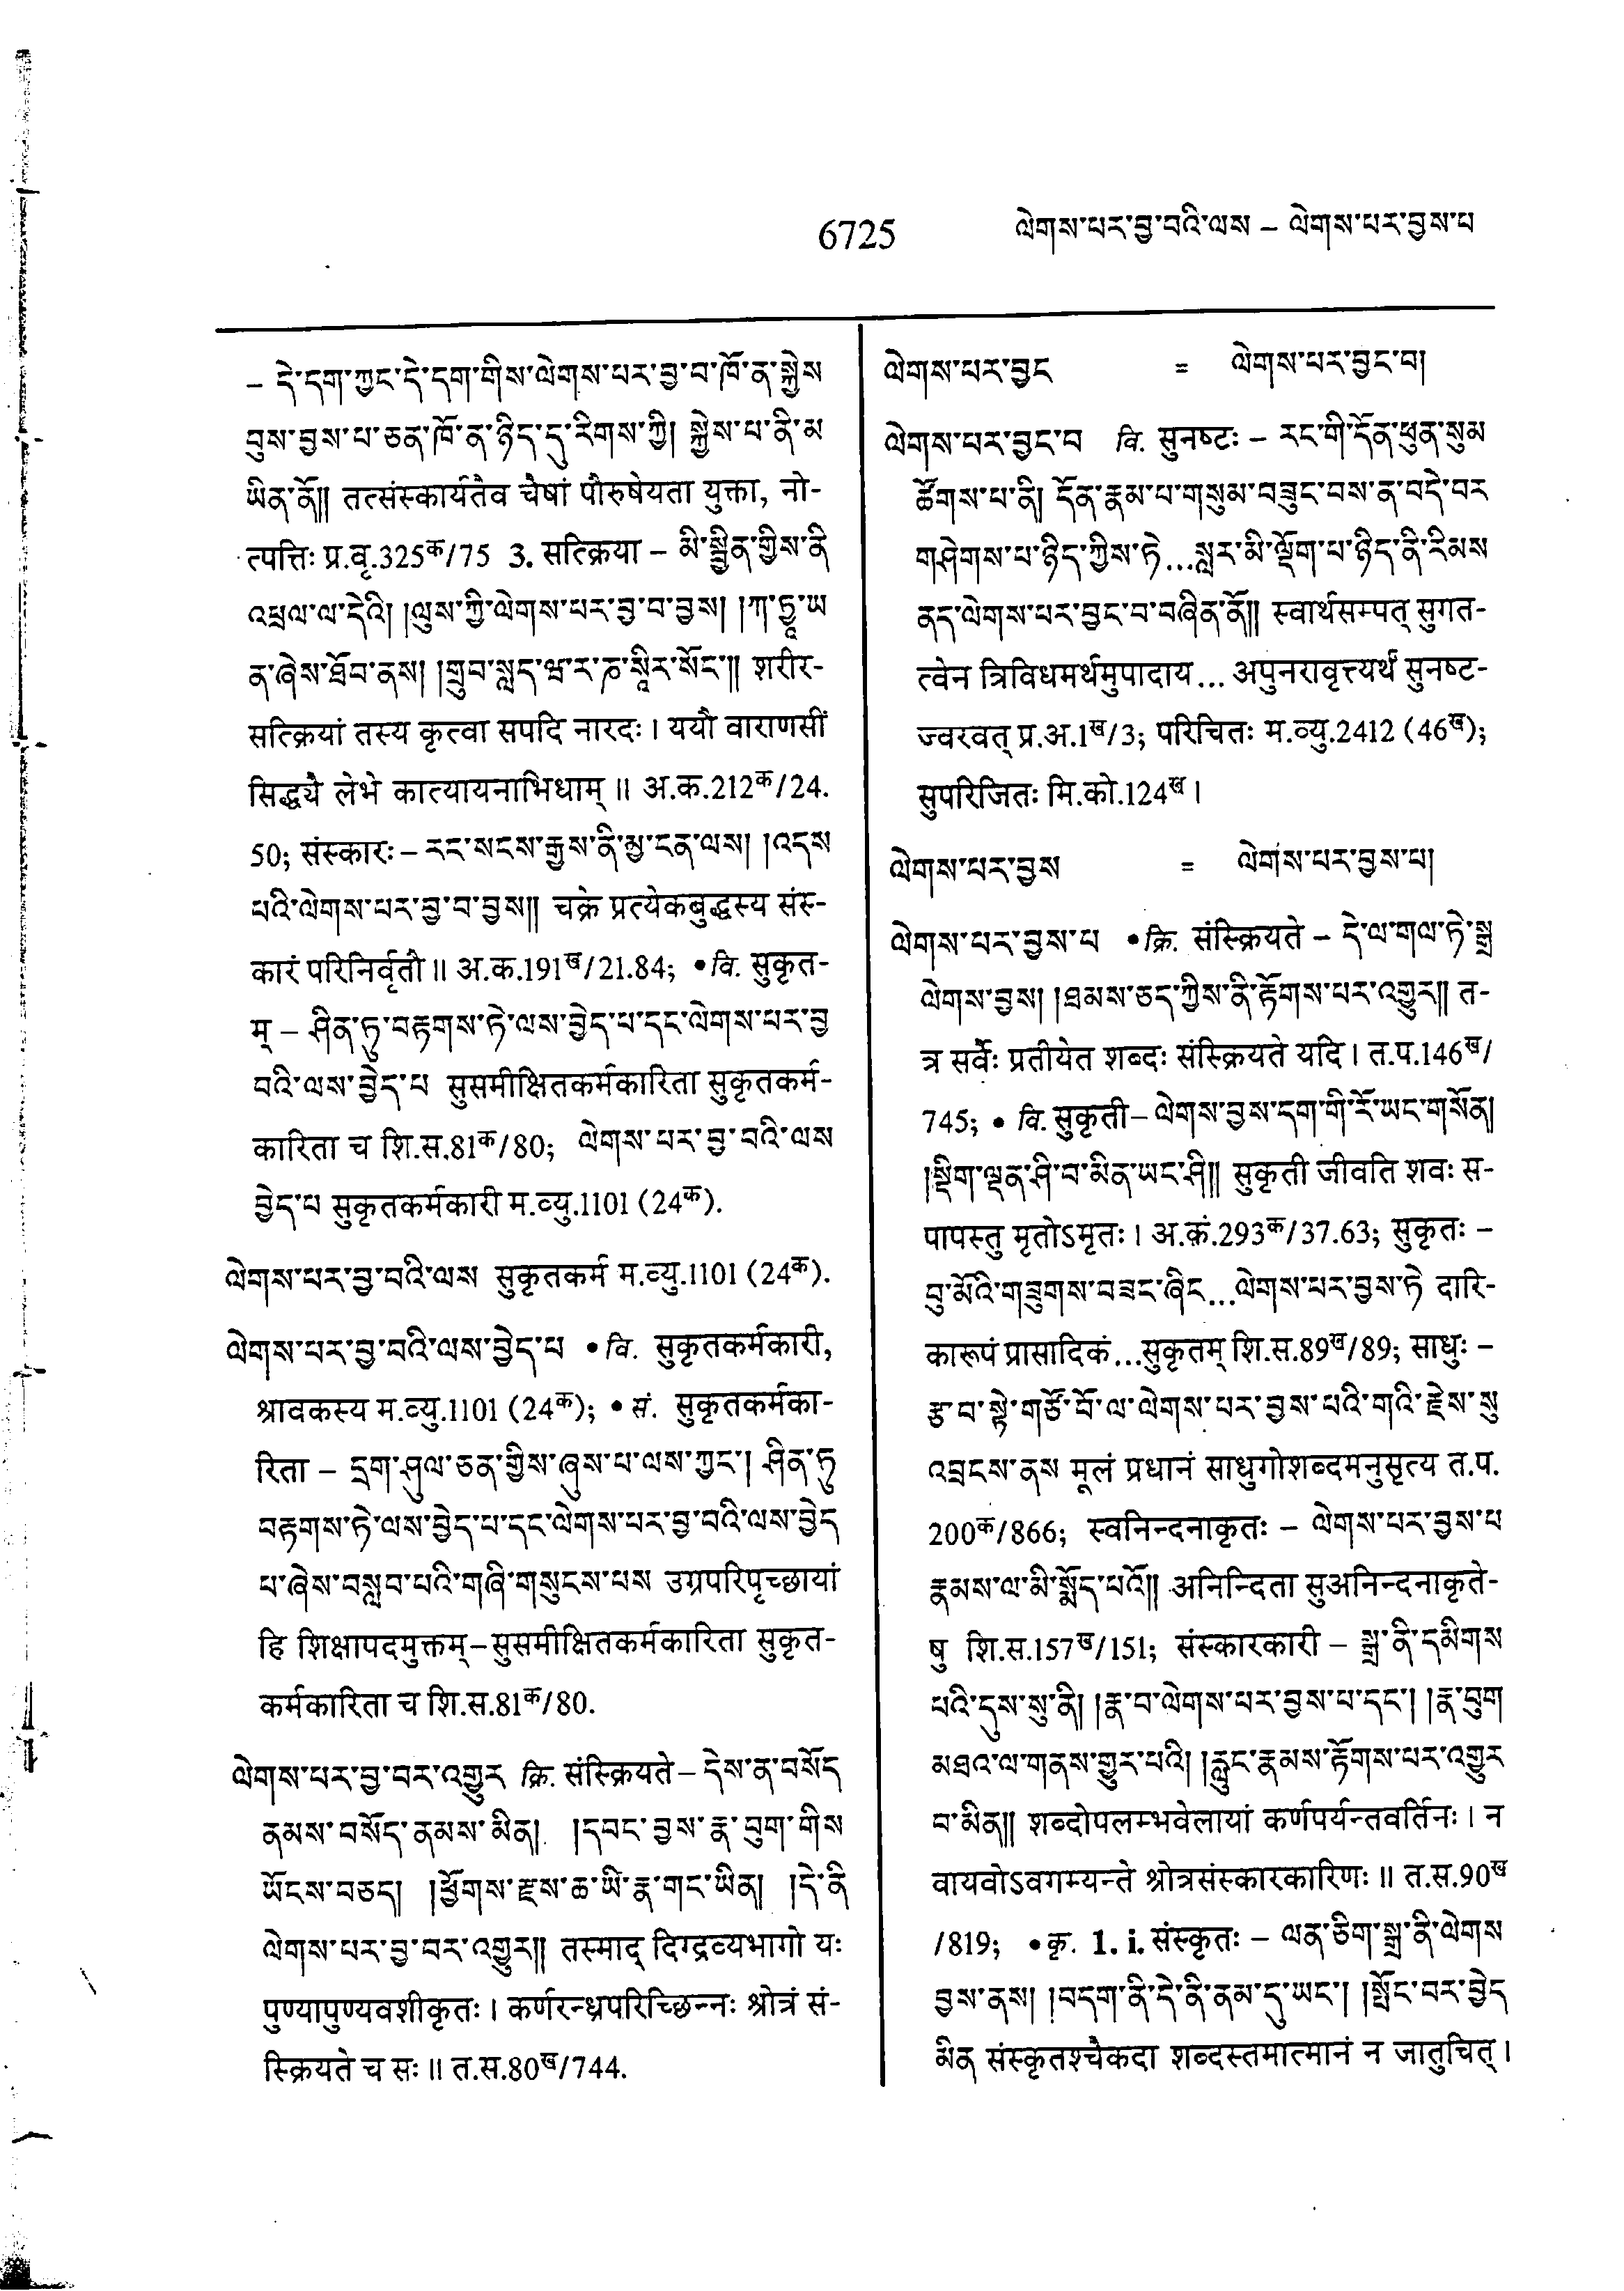 6725 ལེགས་པར་བྱ་བའི་ལས – ལེགས་པར་བྱས་པ
– དེ་དག་ཀྱང་དེ་དག་གིས་ལེགས་པར་བྱ་བ་ཁོ་ན་སྐྱེས
བུས་བྱས་པ་ཅན་ཁོ་ན་ཉིད་དུ་རིགས་ཀྱི། སྐྱེས་པ་ནི་མ
ཡིན་ནོ།། तत्संस्कार्यतैव चैषां पौरुषेयता युक्ता, नो-
त्पत्तिः प्र.वृ.325क/75 3. सत्क्रिया – མི་སྦྱིན་གྱིས་ནི
འཕྲལ་ལ་དེའི། །ལུས་ཀྱི་ལེགས་པར་བྱ་བ་བྱས། །ཀ་ཏྱཱ་ཡ
ན་ཞེས་ཐོབ་ནས། །གྲུབ་སླད་ཝ་ར་ཎ་སཱིར་སོང་།། शरीर-
सत्क्रियां तस्य कृत्वा सपदि नारदः । ययौ वाराणसीं
सिद्ध्यै लेभे कात्यायनाभिधाम् ॥ अ.क.212क/24.
50; संस्कारः – རང་སངས་རྒྱས་ནི་མྱ་ངན་ལས། །འདས
པའི་ལེགས་པར་བྱ་བ་བྱས།། चक्रे प्रत्येकबुद्धस्य संस्-
कारं परिनिर्वृतौ ॥ अ.क.191ख/21.84; •वि. सुकृत-
म् – ཤིན་ཏུ་བརྟགས་ཏེ་ལས་བྱེད་པ་དང་ལེགས་པར་བྱ
བའི་ལས་བྱེད་པ सुसमीक्षितकर्मकारिता सुकृतकर्म-
कारिता च शि.स.81क/80; ལེགས་པར་བྱ་བའི་ལས
བྱེད་པ सुकृतकर्मकारी म.व्यु.1101 (24क).
ལེགས་པར་བྱ་བའི་ལས सुकृतकर्म म.व्यु.1101 (24क).
ལེགས་པར་བྱ་བའི་ལས་བྱེད་པ •वि. सुकृतकर्मकारी,
श्रावकस्य म.व्यु.1101 (24क); • सं. सुकृतकर्मका-
रिता – དྲག་ཤུལ་ཅན་གྱིས་ཞུས་པ་ལས་ཀྱང་། ཤིན་ཏུ
བརྟགས་ཏེ་ལས་བྱེད་པ་དང་ལེགས་པར་བྱ་བའི་ལས་བྱེད
པ་ཞེས་བསླབ་པའི་གཞི་གསུངས་པས उग्रपरिपृच्छायां
हि शिक्षापदमुक्तम् – सुसमीक्षितकर्मकारिता सुकृत-
कर्मकारिता च शि.स.81क/80.
ལེགས་པར་བྱ་བར་འགྱུར क्रि. संस्क्रियते – དེས་ན་བསོད
ནམས་བསོད་ནམས་མིན། །དབང་བྱས་རྣ་བུག་གིས
ཡོངས་བཅད། །ཕྱོགས་རྫས་ཆ་ཡི་རྣ་གང་ཡིན། །དེ་ནི
ལེགས་པར་བྱ་བར་འགྱུར།། तस्माद् दिग्द्रव्यभागो यः
पुण्यापुण्यवशीकृतः । कर्णरन्ध्रपरिच्छिन्नः श्रोत्रं सं-
स्क्रियते च सः ॥ त.स.80ख/744.
ལེགས་པར་བྱང = ལེགས་པར་བྱང་བ།
ལེགས་པར་བྱང་བ वि. सुनष्टः – རང་གི་དོན་ཕུན་སུམ
ཚོགས་པ་ནི། དོན་རྣམ་པ་གསུམ་བཟུང་བས་ན་བདེ་བར
གཤེགས་པ་ཉིད་ཀྱིས་ཏེ...སླར་མི་ལྡོག་པ་ཉིད་ནི་རིམས
ནད་ལེགས་པར་བྱང་བ་བཞིན་ནོ།། स्वार्थसम्पत् सुगत-
त्वेन त्रिविधमर्थमुपादाय... अपुनरावृत्त्यर्थं सुनष्ट-
ज्वरवत् प्र.अ.1ख/3; परिचितः म.व्यु.2412 (46ख);
सुपरिजितः मि.को.124ख ।
ལེགས་པར་བྱས = ལེགས་པར་བྱས་པ།
ལེགས་པར་བྱས་པ •क्रि. संस्क्रियते – དེ་ལ་གལ་ཏེ་སྒྲ
ལེགས་བྱས། །ཐམས་ཅད་ཀྱིས་ནི་རྟོགས་པར་འགྱུར།། त-
त्र सर्वैः प्रतीयेत शब्दः संस्क्रियते यदि । त.प.146ख/
745; • वि. सुकृती – ལེགས་བྱས་དག་གི་རོ་ཡང་གསོན།
།སྡིག་ལྡན་ཤི་བ་མིན་ཡང་ཤི།། सुकृती जीवति शवः स-
पापस्तु मृतोऽमृतः । अ.क.293क/37.63; सुकृतः –
བུ་མོའི་གཟུགས་བཟང་ཞིང...ལེགས་པར་བྱས་ཏེ दारि-
कारूपं प्रासादिकं...सुकृतम् शि.स.89ख/89; साधुः –
རྩ་བ་སྟེ་གཙོ་བོ་ལ་ལེགས་པར་བྱས་པའི་གའི་རྗེས་སུ
འབྲངས་ནས मूलं प्रधानं साधुगोशब्दमनुसृत्य त.प.
200क/866; स्वनिन्दनाकृतः – ལེགས་པར་བྱས་པ
རྣམས་ལ་མི་སྨོད་པའོ།། अनिन्दिता सुअनिन्दनाकृते-
षु शि.स.157ख/151; संस्कारकारी – སྒྲ་ནི་དམིགས
པའི་དུས་སུ་ནི། །རྣ་བ་ལེགས་པར་བྱས་པ་དང་། །རྣ་བུག
མཐའ་ལ་གནས་གྱུར་པའི། །རླུང་རྣམས་རྟོགས་པར་འགྱུར
བ་མིན།། शब्दोपलम्भवेलायां कर्णपर्यन्तवर्तिनः । न
वायवोऽवगम्यन्ते श्रोत्रसंस्कारकारिणः ॥ त.स.90ख
/819; •कृ. 1. i. संस्कृतः – ལན་ཅིག་སྒྲ་ནི་ལེགས
བྱས་ནས། །བདག་ནི་དེ་ནི་ནམ་དུ་ཡང་། །སྤོང་བར་བྱེད
མིན संस्कृतश्चैकदा शब्दस्तमात्मानं न जातुचित् ।